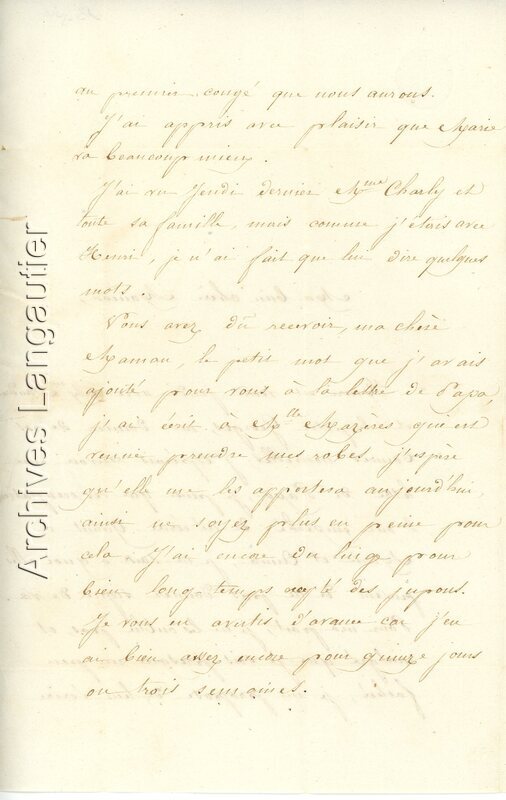 au premier congé que nous aurons.
J'ai appris avec plaisir que Marie
va beaucoup mieux.
J'ai vu Jeudi dernier Mme Charly et
toute sa famille, mais comme j'étois avec
Henri, je n'ai fait que lui dire quelques
mots.
Vous avez dû recevoir, ma chère
Maman, le petit mot que j'avais
ajouté pour vous à la lettre de Papa,
j'ai écrit à Mlle Mazères qui est
venue prendre mes robes j'espère
qu'elle me les apportera aujourd'hui,
ainsi ne soyez plus en peine pour
cela J'ai encore du linge pour
bien long temps des jupons.
Je vous en avertis d'avance car j'en
ai bien assez encore pour quinze jours
ou trois semaines.
Archives Langautier